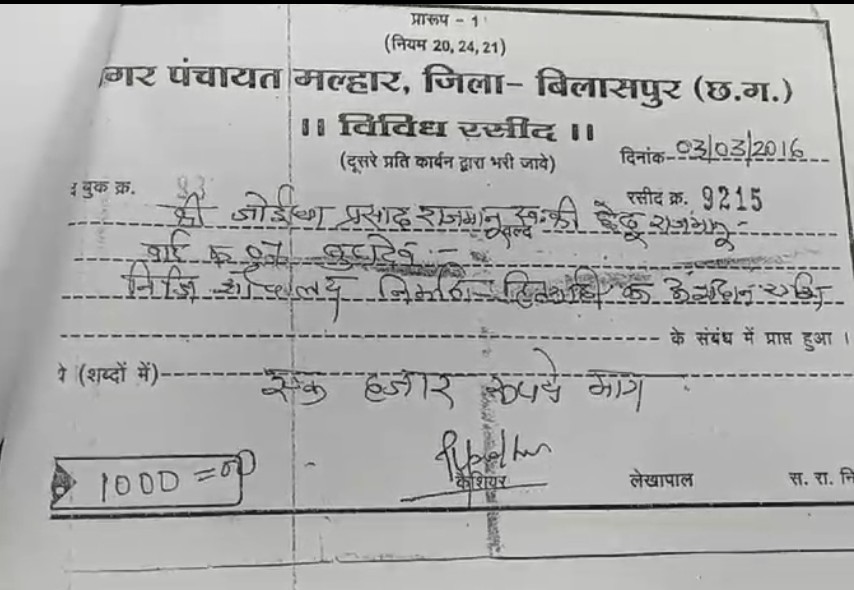 प्रारूप - 1
(नियम 20, 24, 21)
गर पंचायत मल्हार, जिला- बिलासपुर (छ.ग.)
॥ विविध रसीद ॥
(दूसरे प्रति कार्बन द्वारा भरी जावे)
दिनांक 03/03/2016
बुक क्र. 93
रसीद क्र. 9215
श्री प्रसाद राजभानू वल्द
वार्ड क्र 07
निजि शौचालय निर्माण राशि
के संबंध में प्राप्त हुआ ।
(शब्दों में) एक हजार रूपये मात्र
1000=00
कैशियर लेखापाल स. रा. नि